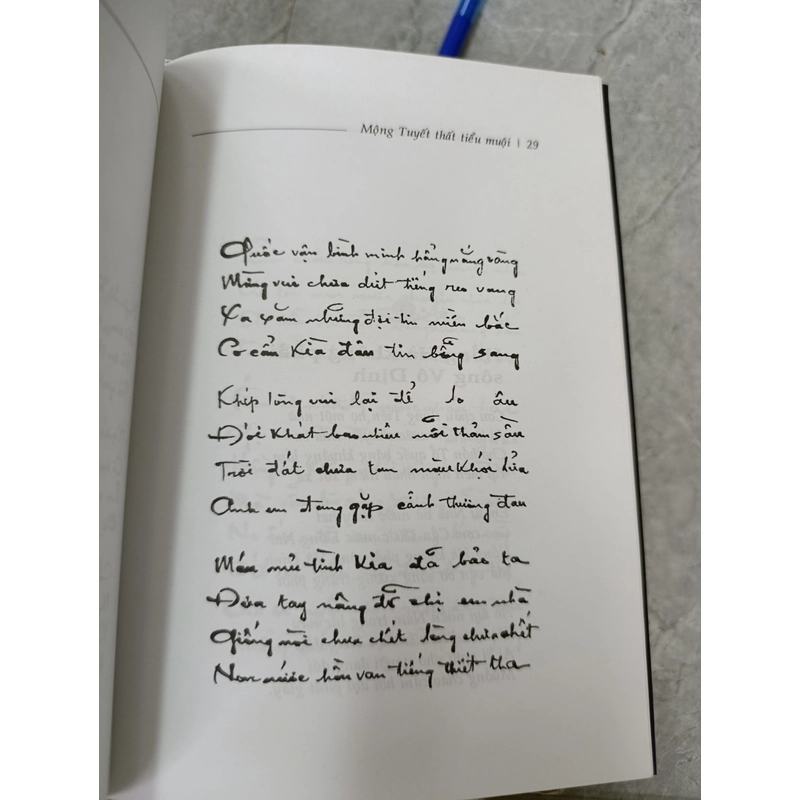 Mộng Tuyết thất tiểu muội | 29
Quốc vận bình minh hẳng nắng vàng
Mừng vui chưa dứt tiếng reo vang
Xa xăm những đợi tin miền bắc
Cơ cẩn kìa đâu tin bỗng sang
Khép lòng vui lại để lo âu
Đói khát bao nhiêu nỗi thảm sầu
Trời đất chưa tan mùi khói lửa
Anh em đang gặp cảnh thương đau
Máu mủ tình kia đã bảo ta
Đưa tay nâng đỡ chị em nhà
Giống nòi chưa chết lòng chưa chết
Non nước hồn van tiếng thiết tha
sông Vô Định